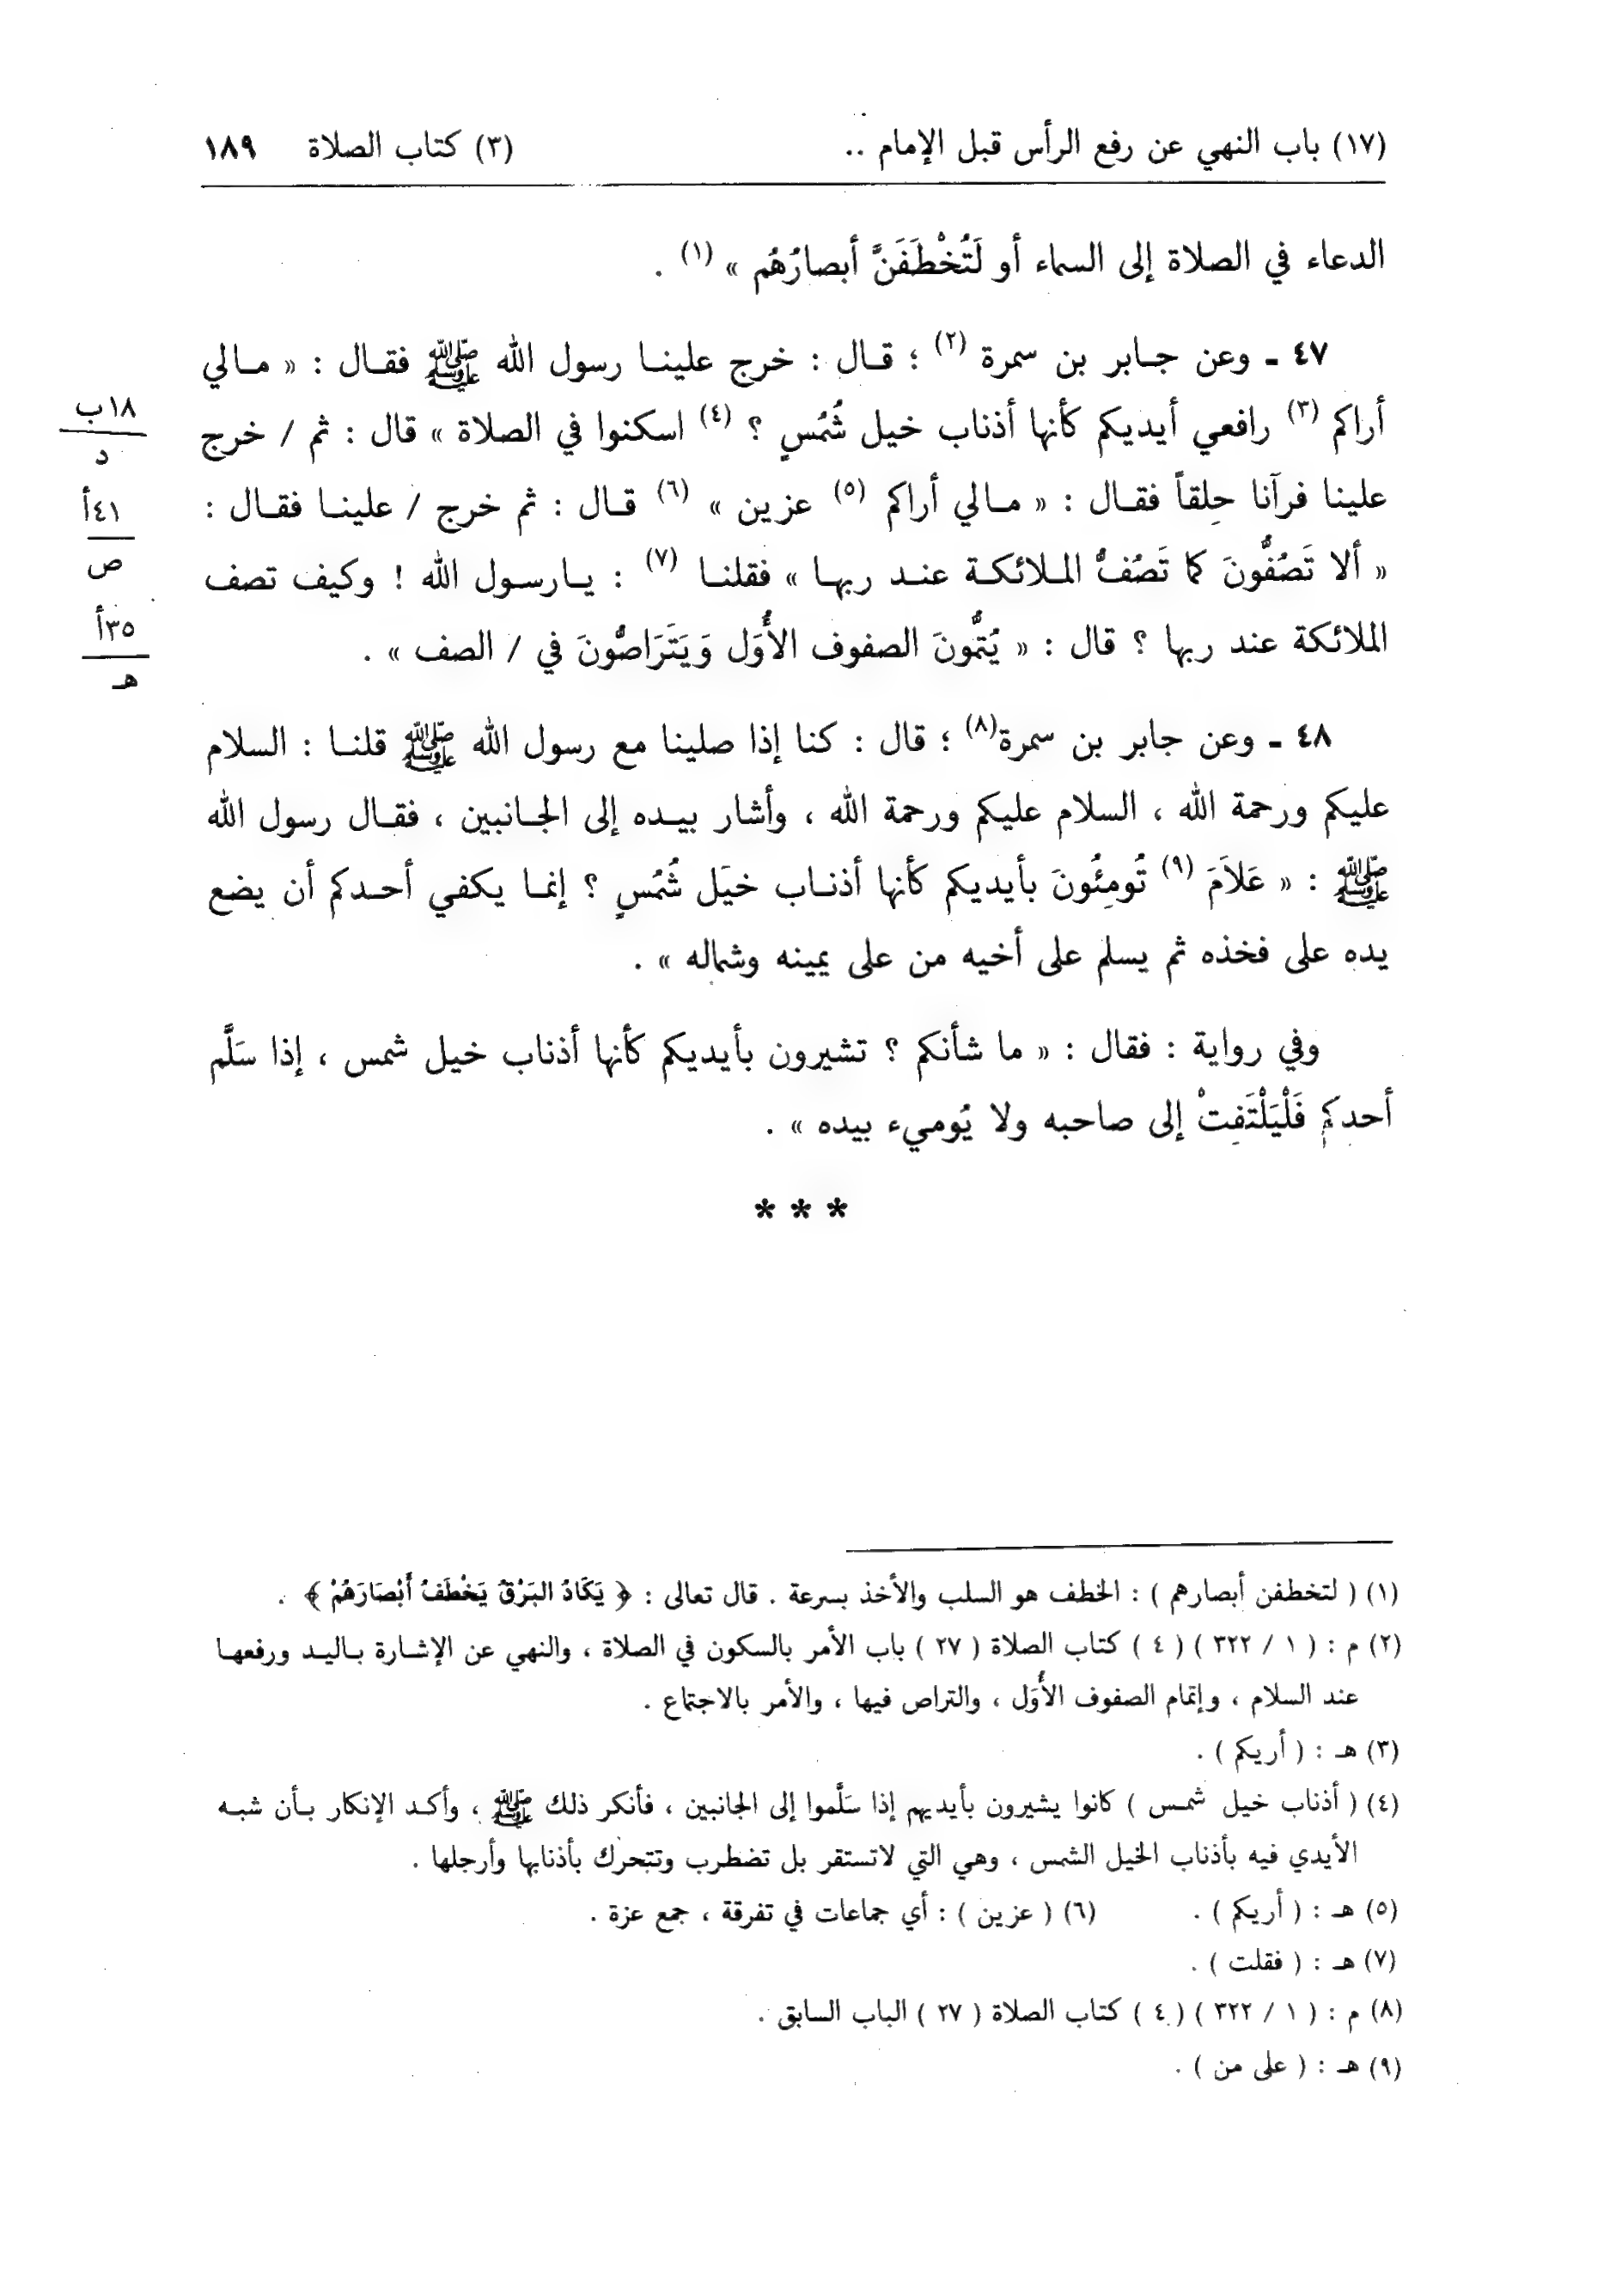 (١٧) باب النهي عن رفع الرأس قبل الإمام .. (٣) كتاب الصلاة ١٨٩
الدعاء في الصلاة إلى السماء أو لَتُخْطَفَنَّ أبصارُهُم » (١) .
٤٧ ـ وعن جـابر بن سمرة (٢) ؛ قـال : خرج علينـا رسول الله ﷺ فقـال : « مـالي
أراكم (٣) رافعي أيديكم كأنها أذناب خيل شُمُسٍ ؟ (٤) اسكنوا في الصلاة » قال : ثم / خرج
علينا فرآنا حِلقاً فقـال : « مـالي أراكم (٥) عزين » (٦) قـال : ثم خرج / علينـا فقـال :
« ألا تَصُفُّونَ كما تَصُفُّ المـلائكـة عنـد ربهـا » فقلنـا (٧) : يـارسـول الله ! وكيف تصف
الملائكة عند ربها ؟ قال : « يُتمُّونَ الصفوف الأُوَل وَيَتَرَاصُّونَ في / الصف » .
١٨ب
د
٤١أ
ص
٣٥أ
هـ
٤٨ ـ وعن جابر بن سمرة(٨) ؛ قال : كنا إذا صلينا مع رسول الله ﷺ قلنـا : السلام
عليكم ورحمة الله ، السلام عليكم ورحمة الله ، وأشار بيـده إلى الجـانبين ، فقـال رسول الله
ﷺ : « عَلاَمَ (٩) تُومِئُونَ بأيديكم كأنها أذنـاب خيَل شُمُسٍ ؟ إنمـا يكفي أحـدكم أن يضع
يده على فخذه ثم يسلم على أخيه من على يمينه وشماله » .
وفي رواية : فقال : « ما شأنكم ؟ تشيرون بأيديكم كأنها أذناب خيل شمس ، إذا سَلَّم
أحدكم فَلْيَلْتَفِتْ إلى صاحبه ولا يُوميء بيده » .
* * *
(١) ( لتخطفن أبصارهم ) : الخطف هو السلب والأخذ بسرعة . قال تعالى : ﴿ يَكَادُ البَرْقُ يَخْطَفُ أَبْصَارَهُمْ ﴾ .
(٢) م : ( ١ / ٣٢٢ ) ( ٤ ) كتاب الصلاة ( ٢٧ ) باب الأمر بالسكون في الصلاة ، والنهي عن الإشـارة بـاليـد ورفعهـا
عند السلام ، وإتمام الصفوف الأُوَل ، والتراص فيها ، والأمر بالاجتماع .
(٣) هـ : ( أريكم ) .
(٤) ( أذناب خيل شمـس ) كانوا يشيرون بأيديهم إذا سَلَّموا إلى الجانبين ، فأنكر ذلك ﷺ ، وأكـد الإنكار بـأن شبـه
الأيدي فيه بأذناب الخيل الشمس ، وهي التي لاتستقر بل تضطرب وتتحرك بأذنابها وأرجلها .
(٥) هـ : ( أريكم ) . (٦) ( عزين ) : أي جماعات في تفرقة ، جمع عزة .
(٧) هـ : ( فقلت ) .
(٨) م : ( ١ / ٣٢٢ ) ( ٤ ) كتاب الصلاة ( ٢٧ ) الباب السابق .
(٩) هـ : ( على من ) .